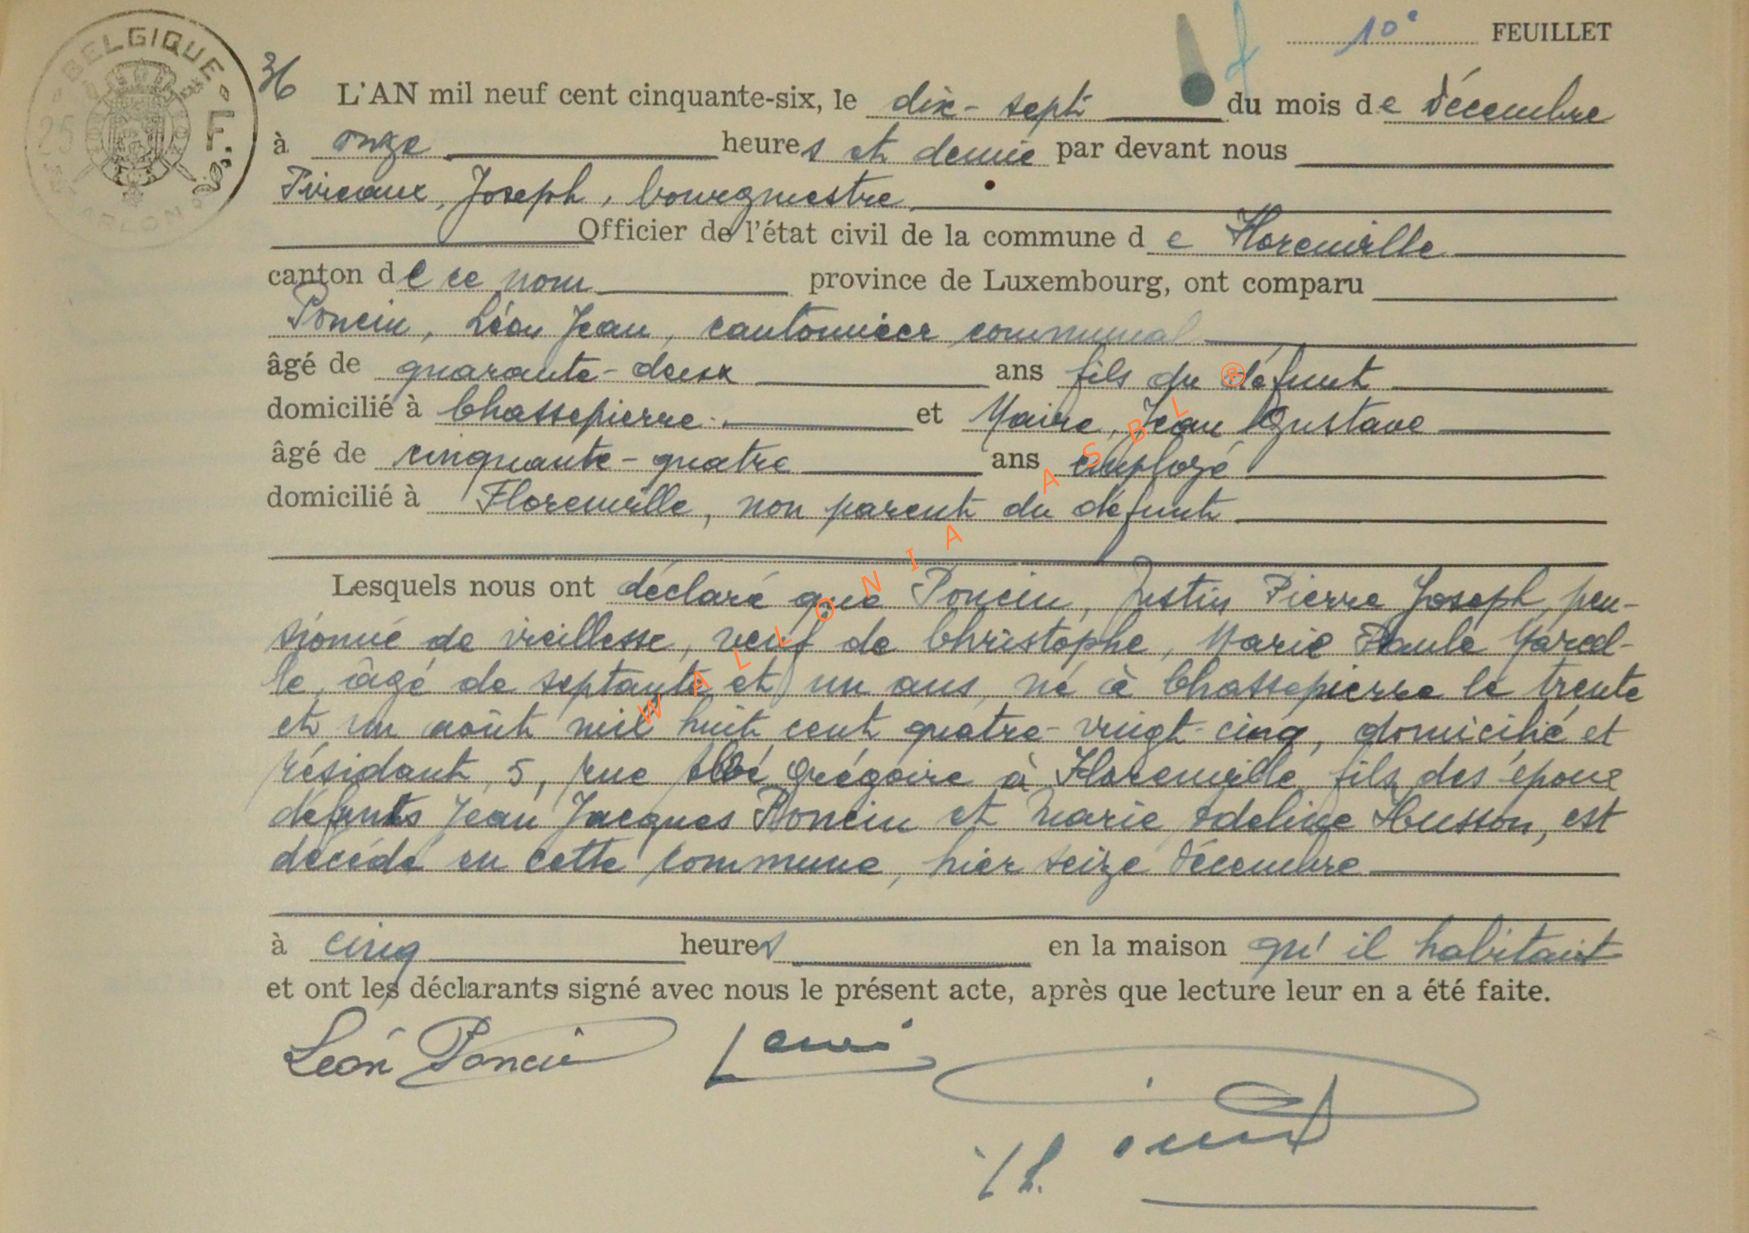 BELGIQUE
25 F.
ARLON
10e FEUILLET
36
L'AN mil neuf cent cinquante-six, le dix-sept du mois de décembre
à onze heures et demie par devant nous
Pireaux, Joseph, bourgmestre
Officier de l'état civil de la commune de Florenville
canton de ce nom province de Luxembourg, ont comparu
Poncin, Léon Jean, cantonnier communal
âgé de quarante-deux ans fils du défunt
domicilié à Chassepierre et Maire, Jean Gustave
âgé de cinquante-quatre ans employé
domicilié à Florenville, non parent du défunt
Lesquels nous ont déclaré que Poncin, Justin Pierre Joseph, pen-
sionné de vieillesse, veuf de Christophe, Marie Paule Marcel-
le, âgé de septante et un ans, né à Chassepierre le trente
et un août mil huit cent quatre-vingt-cinq, domicilié et
résidant, 5, rue abbé Grégoire à Florenville, fils des époux
défunts Jean Jacques Poncin et Marie Adeline Husson, est
décédé en cette commune, hier seize décembre
à cinq heures en la maison qu'il habitait
et ont les déclarants signé avec nous le présent acte, après que lecture leur en a été faite.
Léon Poncin
WALLONIA ASBL ®